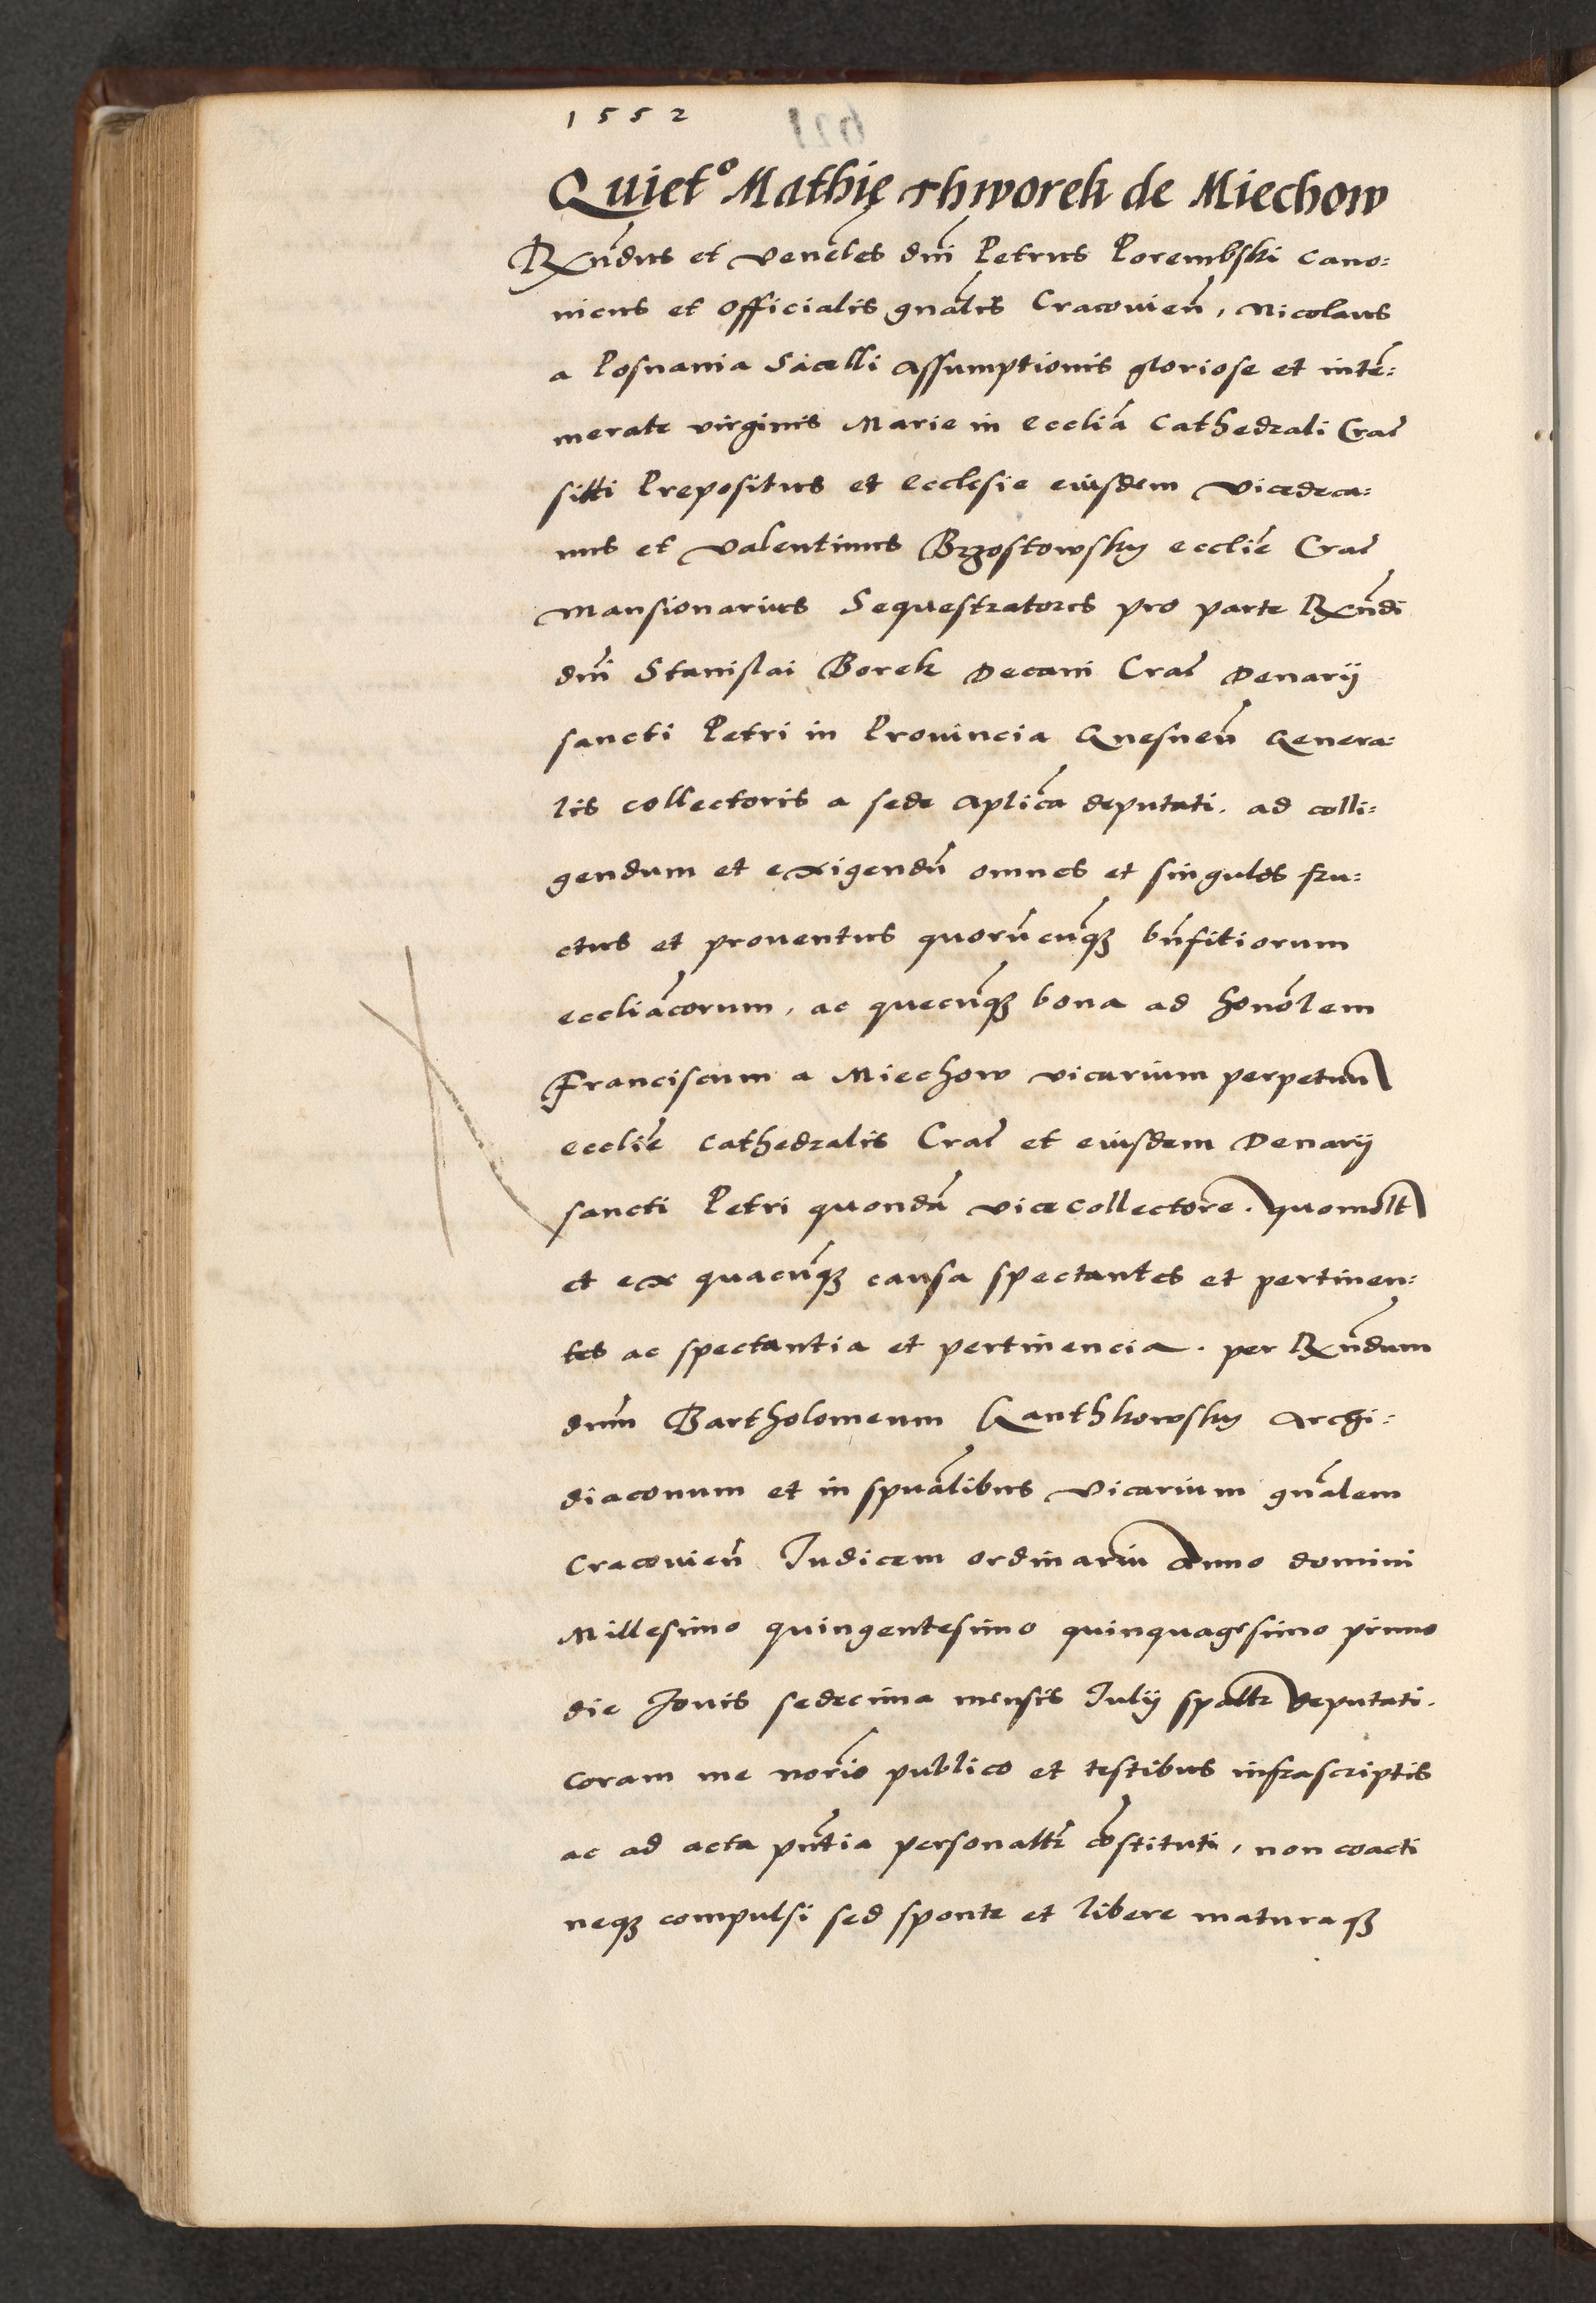 1552
Quietº Mathię Thworek de Miechow
Rxndus et Venēles dni Petrus Porembski Cano:
nicus et Officialis gnalis Cracovien, Nicolaus
a Posnania Sacelli Assumptionis gloriose et inte:
merate virginis Marie in Ecclia Cathedrali Crac
siti Prepositus et Ecclesie eiusdem Vicedeca:
nus et Valentinus Brzostowsky ecclie Crac
Mansionarius Sequestratores pro parte Rxndi
dni Stanislai Borek Decani Crac Denarij
sancti Petri in Provincia Gnesnen Genera:
lis collectoris a sede Aplica deputati. ad colli:
gendum et exigendu omnes et singulos fru:
ctus et proventus quorucunqз bnfitiorum
eccliacorum, ac quecunqз bona ad honolem
Franciscum a Miechow vicarium perpetuu
ecclie Cathedralis Crac et eiusdem Denarij
sancti Petri quonda vicecollectore. quomolt
et ex quacunqз causa spectantes et pertinen:
tes ac spectantia et pertinencia. per Rxndum
dnum Bartholomeum Ganthkowsky Archi:
diaconum et in spualibus Vicarium gnalem
Cracovien Iudicem ordinariu Anno domini
Millesimo quingentesimo quinquagesimo primo
die Jovis sedecima mensis Iulij spaltr deputati.
Coram me norio publico et testibus infrascriptis
ac ad acta pntia personaltr costituti, non coacti
neqз compulsi sed sponte et libere maturaqз